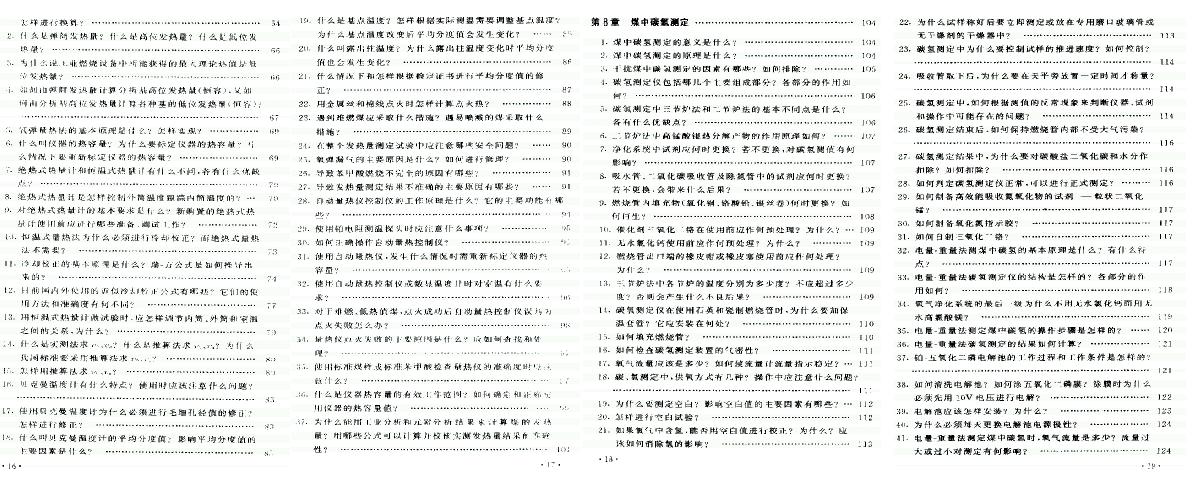 怎样进行换算? …… 64
2. 什么是弹筒发热量? 什么是高位发热量? 什么是低位发
热量? …… 66
3. 为什么说工业燃烧设备中所能获得的最大理论热值是低
位发热量? …… 66
…… 67
5. 氧弹量热法的基本原理是什么? 怎样实现? …… 69
6. 什么叫仪器的热容量? 为什么要标定仪器的热容量? 什
么情况下要重新标定仪器的热容量? …… 69
7. 绝热式热量计和恒温式热量计有什么不同,各有什么优缺
点?
8. 绝热式热量计是怎样控制外筒温度跟踪内筒温度的? …… 70
9. 对绝热式热量计的基本要求是什么? 新购置的绝热式热
量计使用前应进行哪些准备、调试工作? …… 72
10. 恒温式量热法为什么必须进行冷却校正? 而绝热式量热
法不需要? …… 73
11. 冷却校正的基本原理是什么?
来的?
12. 目前国内外使用的近似冷却校正公式有哪些? 它们的使
用方法和准确度有何不同? …… 77
13. 用恒温式热量计做试验时,应怎样调节内筒、外筒和室温
之间的关系,为什么? …… 79
14. 什么是实测法求
我国标准要采用推算法求
15. 怎样用推算法求
16. 贝克曼温度计有什么特点? 使用时应该注意什么问题?
…… 83
17. 使用贝克曼温度计为什么必须进行毛细孔径值的修正?
怎样进行修正? …… 83
18. 什么叫贝克曼温度计的平均分度值? 影响平均分度值的
主要因素是什么?
· 16 ·
19. 什么是基点温度? 怎样根据实际测温需要调整基点温度?
为什么基点温度改变后平均分度值会发生变化? …… 85
20. 什么叫露出柱温度? 为什么露出柱温度变化时平均分度
值也会发生变化? …… 86
21. 什么情况下和怎样根据检定证书进行平均分度值的修
正? …… 87
22. 用金属丝和棉线点火时怎样计算点火热? …… 88
23. 遇到难燃煤应采取什么措施? 遇易喷溅的煤采取什么
措施? …… 89
24. 在整个发热量测定试验中应注意哪些安全问题? …… 90
25. 氧弹漏气的主要原因是什么? 如何进行修理? …… 90
26. 导致苯甲酸燃烧不完全的原因有哪些? …… 91
27. 导致发热量测定结果不准确的主要原因有哪些? …… 91
28. 自动量热仪控制仪的工作原理是什么? 它的主要功能有哪
些? …… 91
29. 使用铂电阻测温探头时应注意什么事项? …… 95
30. 如何正确操作自动量热控制仪? …… 95
31. 使用自动量热仪,发生什么情况时需重新标定仪器的热
容量?
32. 使用自动量热控制仪或数显温度计时对室温有什么要
求? …… 96
33. 对于难燃、低热值煤,点火成功后自动量热控制仪误判为
点火失败怎么办? …… 98
34. 量热仪点火失败的主要原因是什么? 应如何查找和处
理?
35. 使用标准煤样或标准苯甲酸检查量热仪的准确度时应注
意什么?
36. 什么是仪器热容量的有效工作范围? 如何确定和正确使
用仪器的热容量值?
37. 为什么能用工业分析和元素分析结果来计算煤的发热
量? 用哪些公式可以计算并校核实测发热量结果的准确
性? …… 101
· 17 ·
第 8 章 煤中碳氢测定 …… 104
1. 煤中碳氢测定的意义是什么? …… 104
2. 煤中碳氢测定的原理是什么? …… 104
3. 干扰煤中碳氢测定的因素有哪些? 如何排除? …… 105
4. 碳氢测定仪包括哪几个主要组成部分? 各部分的作用如
何? …… 106
5. 碳氢测定中三节炉法和二节炉法的基本不同点是什么?
各有什么优缺点? …… 106
6. 二节炉法中高锰酸银热分解产物的作用原理如何? …… 107
7. 净化系统中试剂应何时更换? 若不更换,对碳氢测值有何
影响? …… 107
8. 吸水管、二氧化碳吸收管及除氮管中的试剂应何时更换?
若不更换,会带来什么后果? …… 107
9. 燃烧管内填充物(氧化铜、铬酸铅、银丝卷)何时更换? 如
何再生? …… 108
10. 催化剂三氧化二铬在使用前应作何预处理? 为什么? …… 109
11. 无水氯化钙使用前应作何预处理? 为什么? …… 109
12. 燃烧管出口端的橡皮帽或橡皮塞使用前应作何处理?
为什么? …… 109
13. 三节炉法中各节炉的温度分别为多少度? 不应超过多少
度? 否则会产生什么不良后果? …… 109
14. 碳氢测定仪在使用石英和瓷制燃烧管时,为什么要加保
温套管? 它应安装在何处? …… 110
15. 如何填充燃烧管? …… 110
16. 如何检查碳氢测定装置的气密性? …… 111
17. 氧气流量应该是多少? 如何使流量计流量指示稳定? …… 111
18. 碳、氢测定中,供氧方式有几种? 操作中应注意什么问题?
…… 111
19. 为什么要测定空白? 影响空白值的主要因素有哪些? …… 112
20. 怎样进行空白试验? …… 112
21. 如果氧气中含氢,能否用空白值进行校正? 为什么? 应
该如何消除氢的影响? …… 113
· 18 ·
22. 为什么试样称好后要立即测定或放在专用磨口玻璃管或
无干燥剂的干燥器中? …… 113
23. 碳氢测定中为什么要控制试样的推进速度? 如何控制?
…… 114
24. 吸收管取下后,为什么要在天平旁放置一定时间才称量?
…… 114
25. 碳氢测定中,如何根据测值的反常现象来判断仪器、试剂
和操作中可能存在的问题? …… 114
26. 碳氢测定结束后,如何保持燃烧管内部不受大气污染?
…… 116
27. 碳氢测定结果中,为什么要对碳酸盐二氧化碳和水分作
扣除? 如何扣除? …… 116
28. 如何判定碳氢测定仪正常,可以进行正式测定? …… 116
29. 如何制备高效能吸收氮氧化物的试剂——粒状二氧化
锰? …… 117
30. 如何制备氧化氮指示胶? …… 117
31. 如何自制三氧化二铬? …… 117
32. 电量-重量法测煤中碳氢的基本原理是什么? 有什么特
点? …… 117
33. 电量-重量法碳氢测定仪的结构是怎样的? 各部分的作
用如何? …… 118
34. 氧气净化系统的最后一级为什么不用无水氯化钙而用无
水高氯酸镁? …… 119
35. 电量-重量法测定煤中碳氢的操作步骤是怎样的? …… 120
36. 电量-重量法碳氢测定的结果如何计算? …… 121
37. 铂-五氧化二磷电解池的工作过程和工作条件是怎样的?
…… 121
38. 如何清洗电解池? 如何涂五氧化二磷膜? 涂膜时为什么
必须先用 10V 电压进行电解? …… 122
39. 电解池应该怎样安装? 为什么? …… 123
40. 为什么必须每天更换电解池电源极性? …… 124
41. 电量-重量法测定煤中碳氢时,氧气流量是多少? 流量过
大或过小对测定有何影响? …… 124
· 19 ·